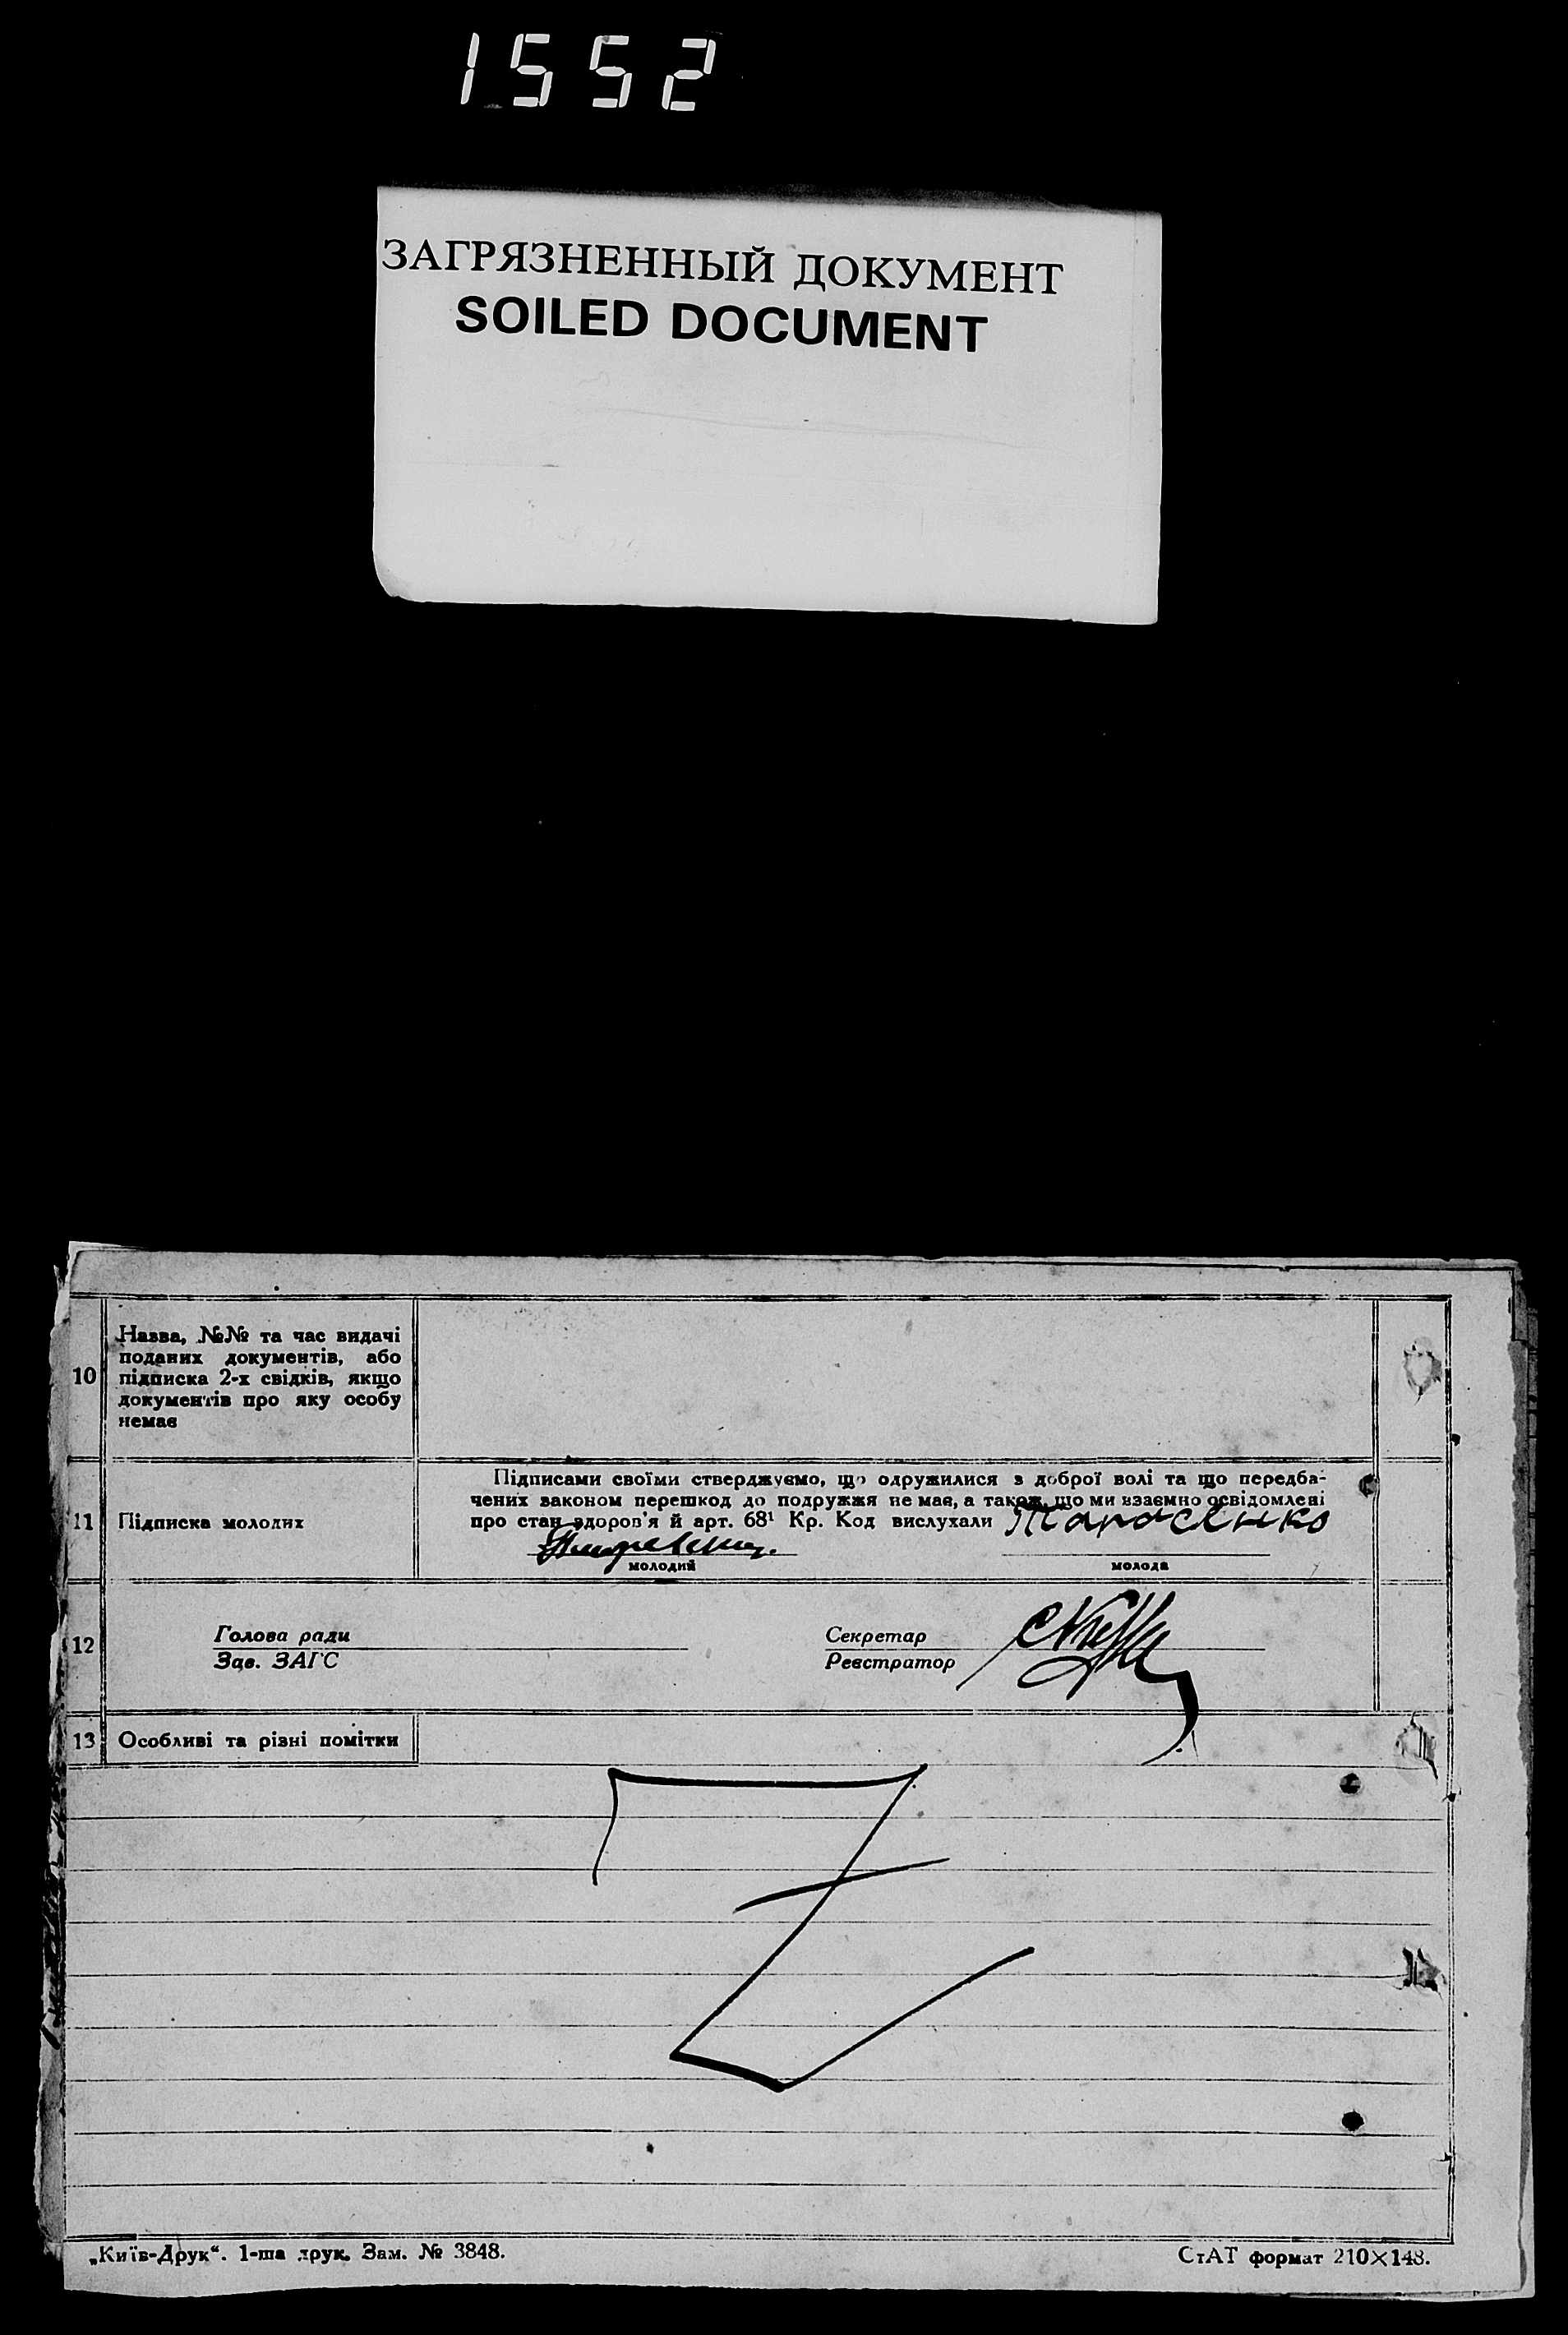 1552
ЗАГРЯЗНЕННЫЙ ДОКУМЕНТ
SOILED DOCUMENT
10
Назва, №№ та час видачі
поданих документів, або
підписка 2-х свідків, якщо
документів про яку особу
немає
11
Підписка молодих
Підписами своїми стверджуємо, що одружилися з доброї волі та що передба-
чених законом перешкод до подружжя не має, а також, що ми взаємно освідомлені
про стан здоров'я й арт. 68¹ Кр. Код вислухали
Тарасенко
молодий
молода
12
Голова ради
Зав. ЗАГС
Секретар
Реєстратор
13
Особливі та різні помітки
„Київ-Друк“. 1-ша друк. Зам. № 3848.
СтАТ формат 210×148.